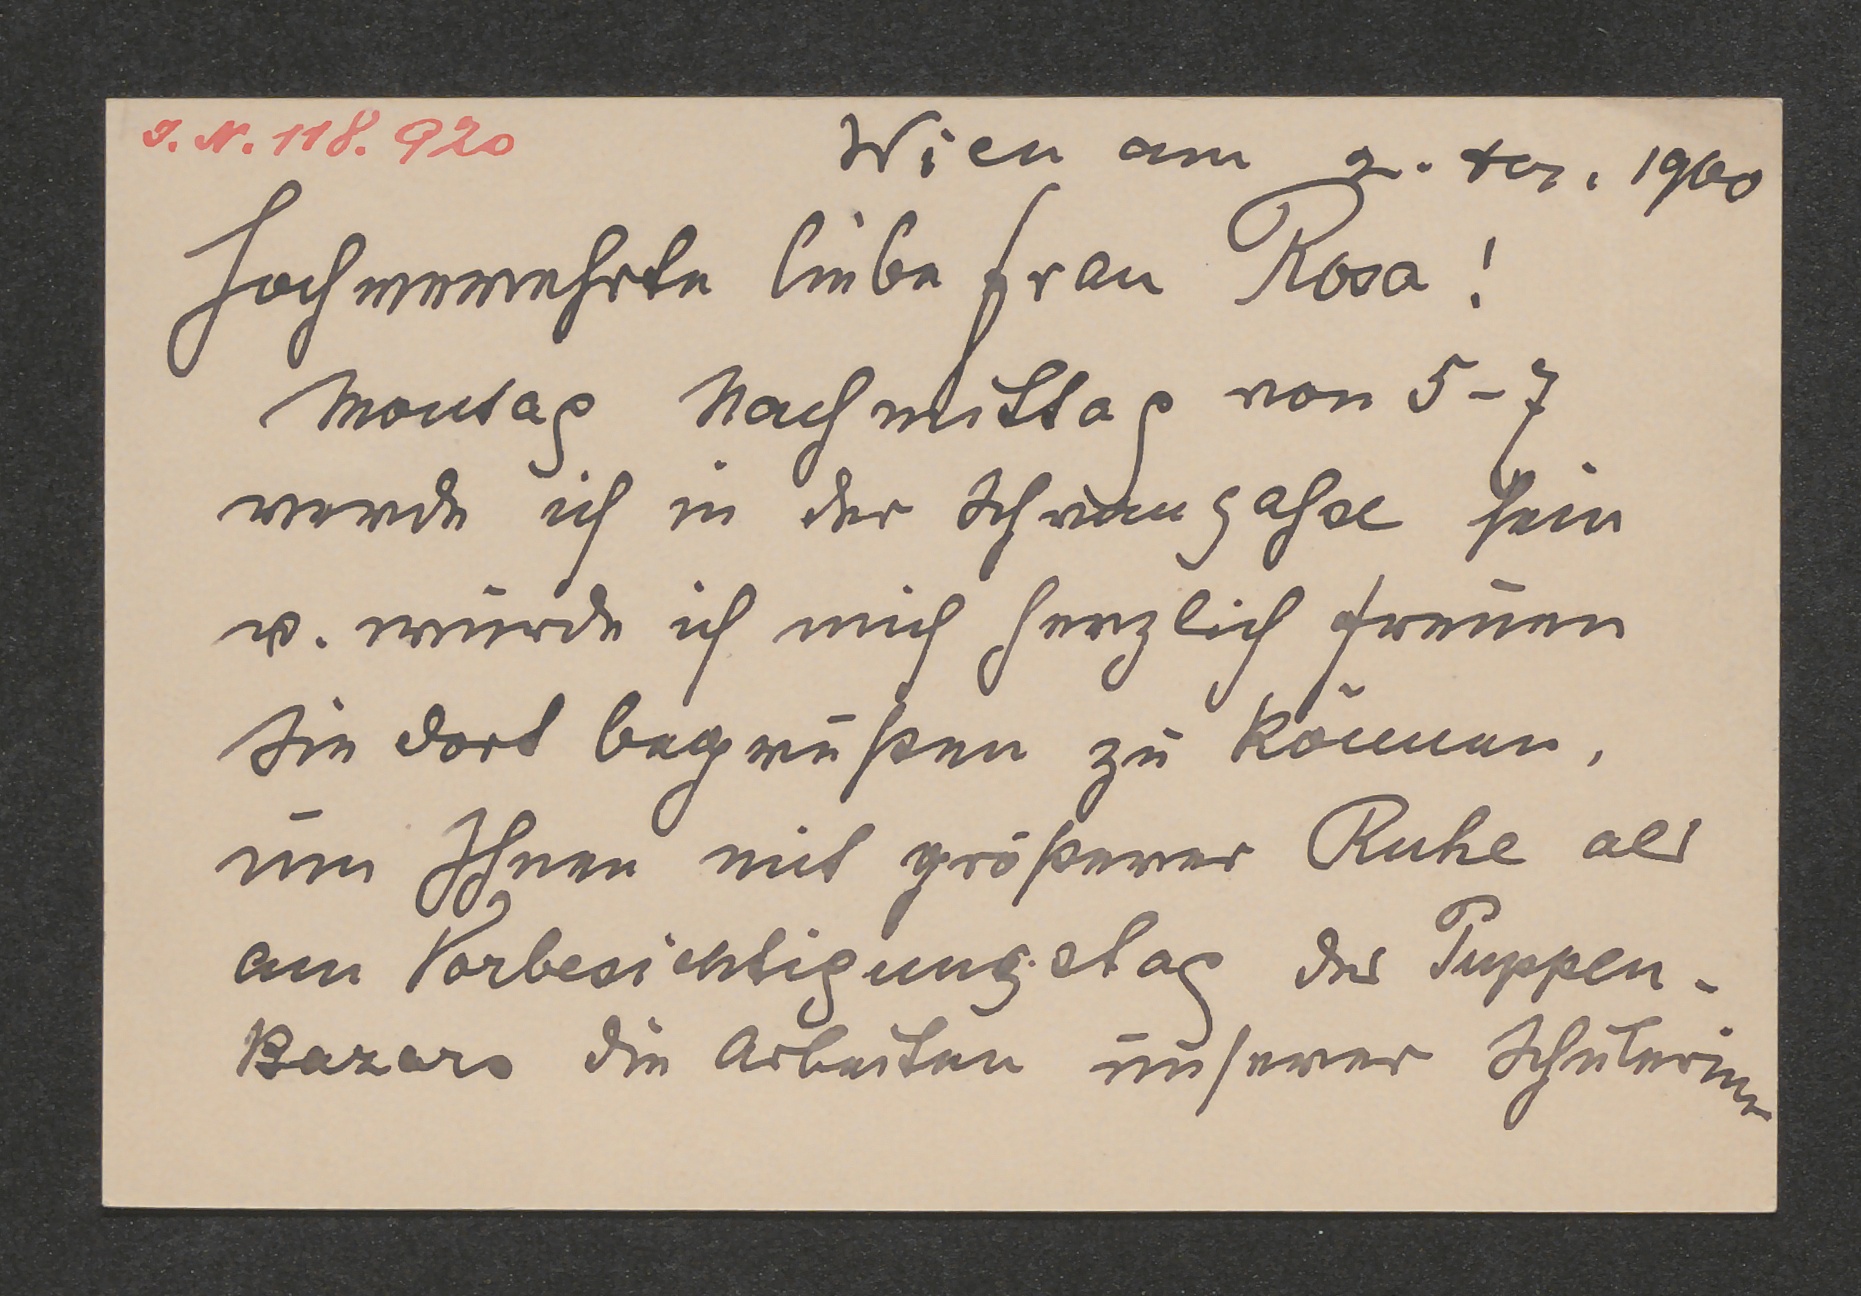 I. N. 118. 920
Wien am 2. 1900
Hochverehrte liebe Frau Rosa!
Montag Nachmittag von 5-7
werde ich in der sein
u. würde ich mich herzlich freuen
Sie dort begrüßen zu können,
um Ihnen mit größerer Ruhe als
am Vorbesichtigungstag des Puppen-
Bazars die Arbeiten unserer Schülerin-